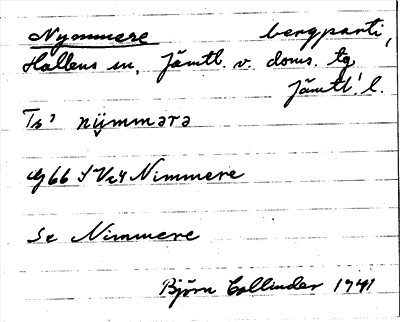 Nymmere bergparti,
Hallens sn, Jämtl. v. doms. tg,
Jämtl. l.
nümmərə
Nimmere
Se Nimmere
Björn Collinder 1941